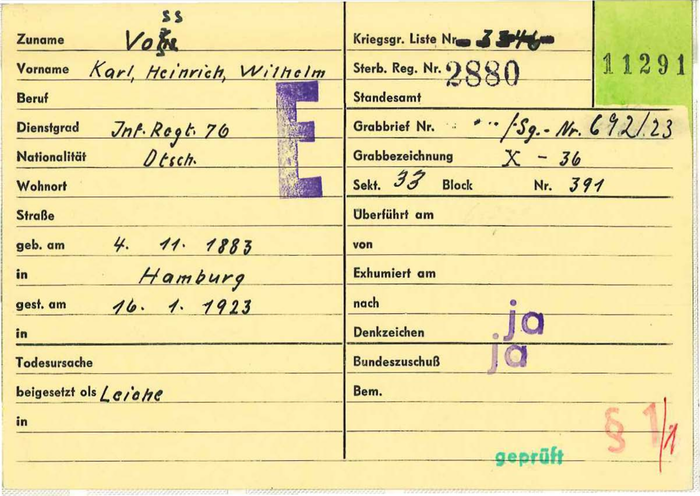 ss
Zuname Vo
Vorname Karl, Heinrich, Wilhelm
Beruf
Dienstgrad Inf. Regt. 76
Nationalität Dtsch.
Wohnort
Straße
geb. am 4. 11. 1883
in Hamburg
gest. am 16. 1. 1923
in
Todesursache
beigesetzt als Leiche
in
E
Kriegsgr. Liste Nr. 3346
Sterb. Reg. Nr. 2880
Standesamt
Grabbrief Nr. /Sg.-Nr. 692/23
Grabbezeichnung X - 36
Sekt. 33 Block Nr. 391
Überführt am
von
Exhumiert am
nach
Denkzeichen ja
Bundeszuschuß ja
Bem.
§ 1/1
geprüft
11291